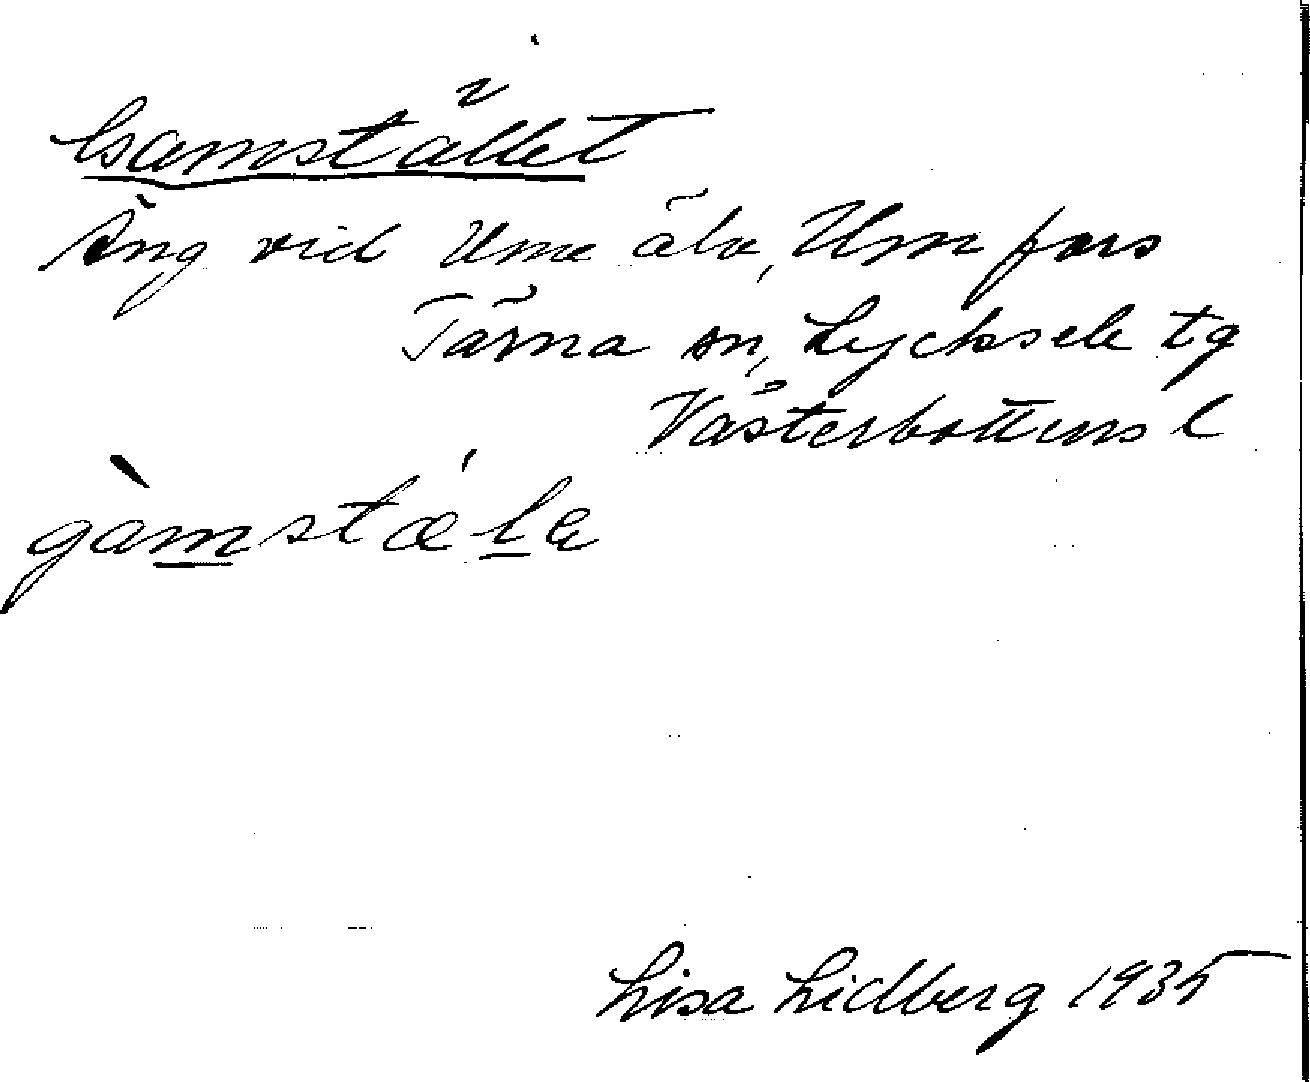 Gamstället
Äng vid Ume älv, Umfors
Tärna sn, Lycksele tg
Västerbottens l
gàmstæ'lə
Lisa Lidberg 1935